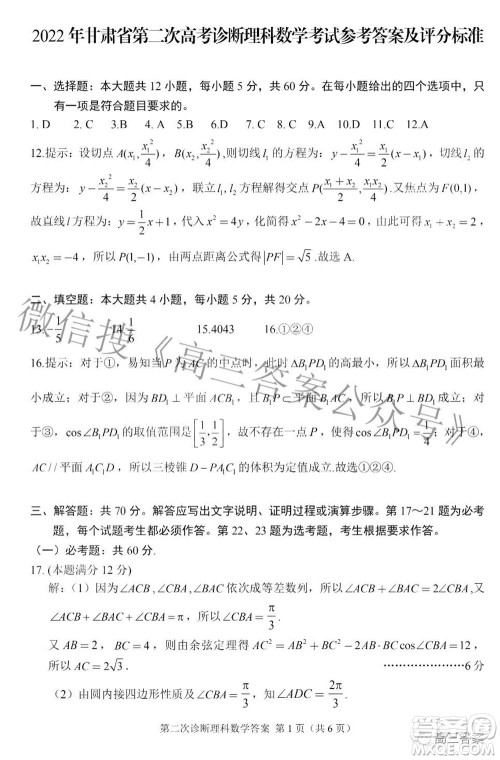 2022 年甘肃省第二次高考诊断理科数学考试参考答案及评分标准
一、选择题：本大题共 12 小题，每小题 5 分，共 60 分。在每小题给出的四个选项中，只
有一项是符合题目要求的。
1. D 2. C 3. B 4. A 5. B 6. D 7. D 8. C 9. D 10. C 11. C 12. A
12.提示：设切点 A(x₁, x₁²/4)，B(x₂, x₂²/4),则切线 l₁ 的方程为：y − x₁²/4 = x₁/2 (x − x₁)，切线 l₂ 的
方程为：y − x₂²/4 = x₂/2 (x − x₂)，联立 l₁, l₂ 方程解得交点 P((x₁ + x₂)/2, x₁x₂/4).又焦点为 F(0,1)，
故直线 l 方程为：y = 1/2 x + 1，代入 x² = 4y，化简得：x² − 2x − 4 = 0，由此可得 x₁ + x₂ = 2，
x₁x₂ = −4，所以 P(1,−1)，由两点距离公式得 |PF| = √5 .故选 A.
二、填空题：本大题共 4 小题，每小题 5 分，共 20 分。
15.4043 16.①②④
16.提示：对于①，易知当 P 为 AC 的中点时，此时 ΔB₁PD₁ 的高最小，所以 B₁PD₁ 面积最
小成立；对于②因为 BD₁ ⊥ 平面 ACB₁，且 B₁P ⊂ 平面 B₁AC，所以 B₁P ⊥ BD₁ 成立；对
于③，cos∠B₁PD₁ 的取值范围是 [1/3, 1/2]，故不存在一点 P，使得 cos∠B₁PD₁ = 1/4；对于④，
AC // 平面 A₁C₁D，所以三棱锥 D − PA₁C₁ 的体积为定值成立.故选①②④.
三、解答题：共 70 分。解答应写出文字说明、证明过程或演算步骤。第 17～21 题为必考
题，每个试题考生都必须作答。第 22、23 题为选考题，考生根据要求作答。
（一）必考题：共 60 分.
17. (本题满分 12 分)
解：（1）因为∠ACB ,∠CBA ,∠BAC 依次成等差数列，所以∠ACB + ∠BAC = 2∠CBA，又
∠ACB + ∠BAC + ∠CBA = π，所以∠CBA = π/3.
又 AB = 2，BC = 4，则由余弦定理得，AC² = AB² + BC² − 2AB·BCcos∠CBA = 12，
所以 AC = 2√3 . ··················6 分
（2）由圆内接四边形性质及∠CBA = π/3，知∠ADC = 2π/3.
第二次诊断理科数学答案 第 1 页（共 6 页）
微信搜《高三答案公众号》
高三答案